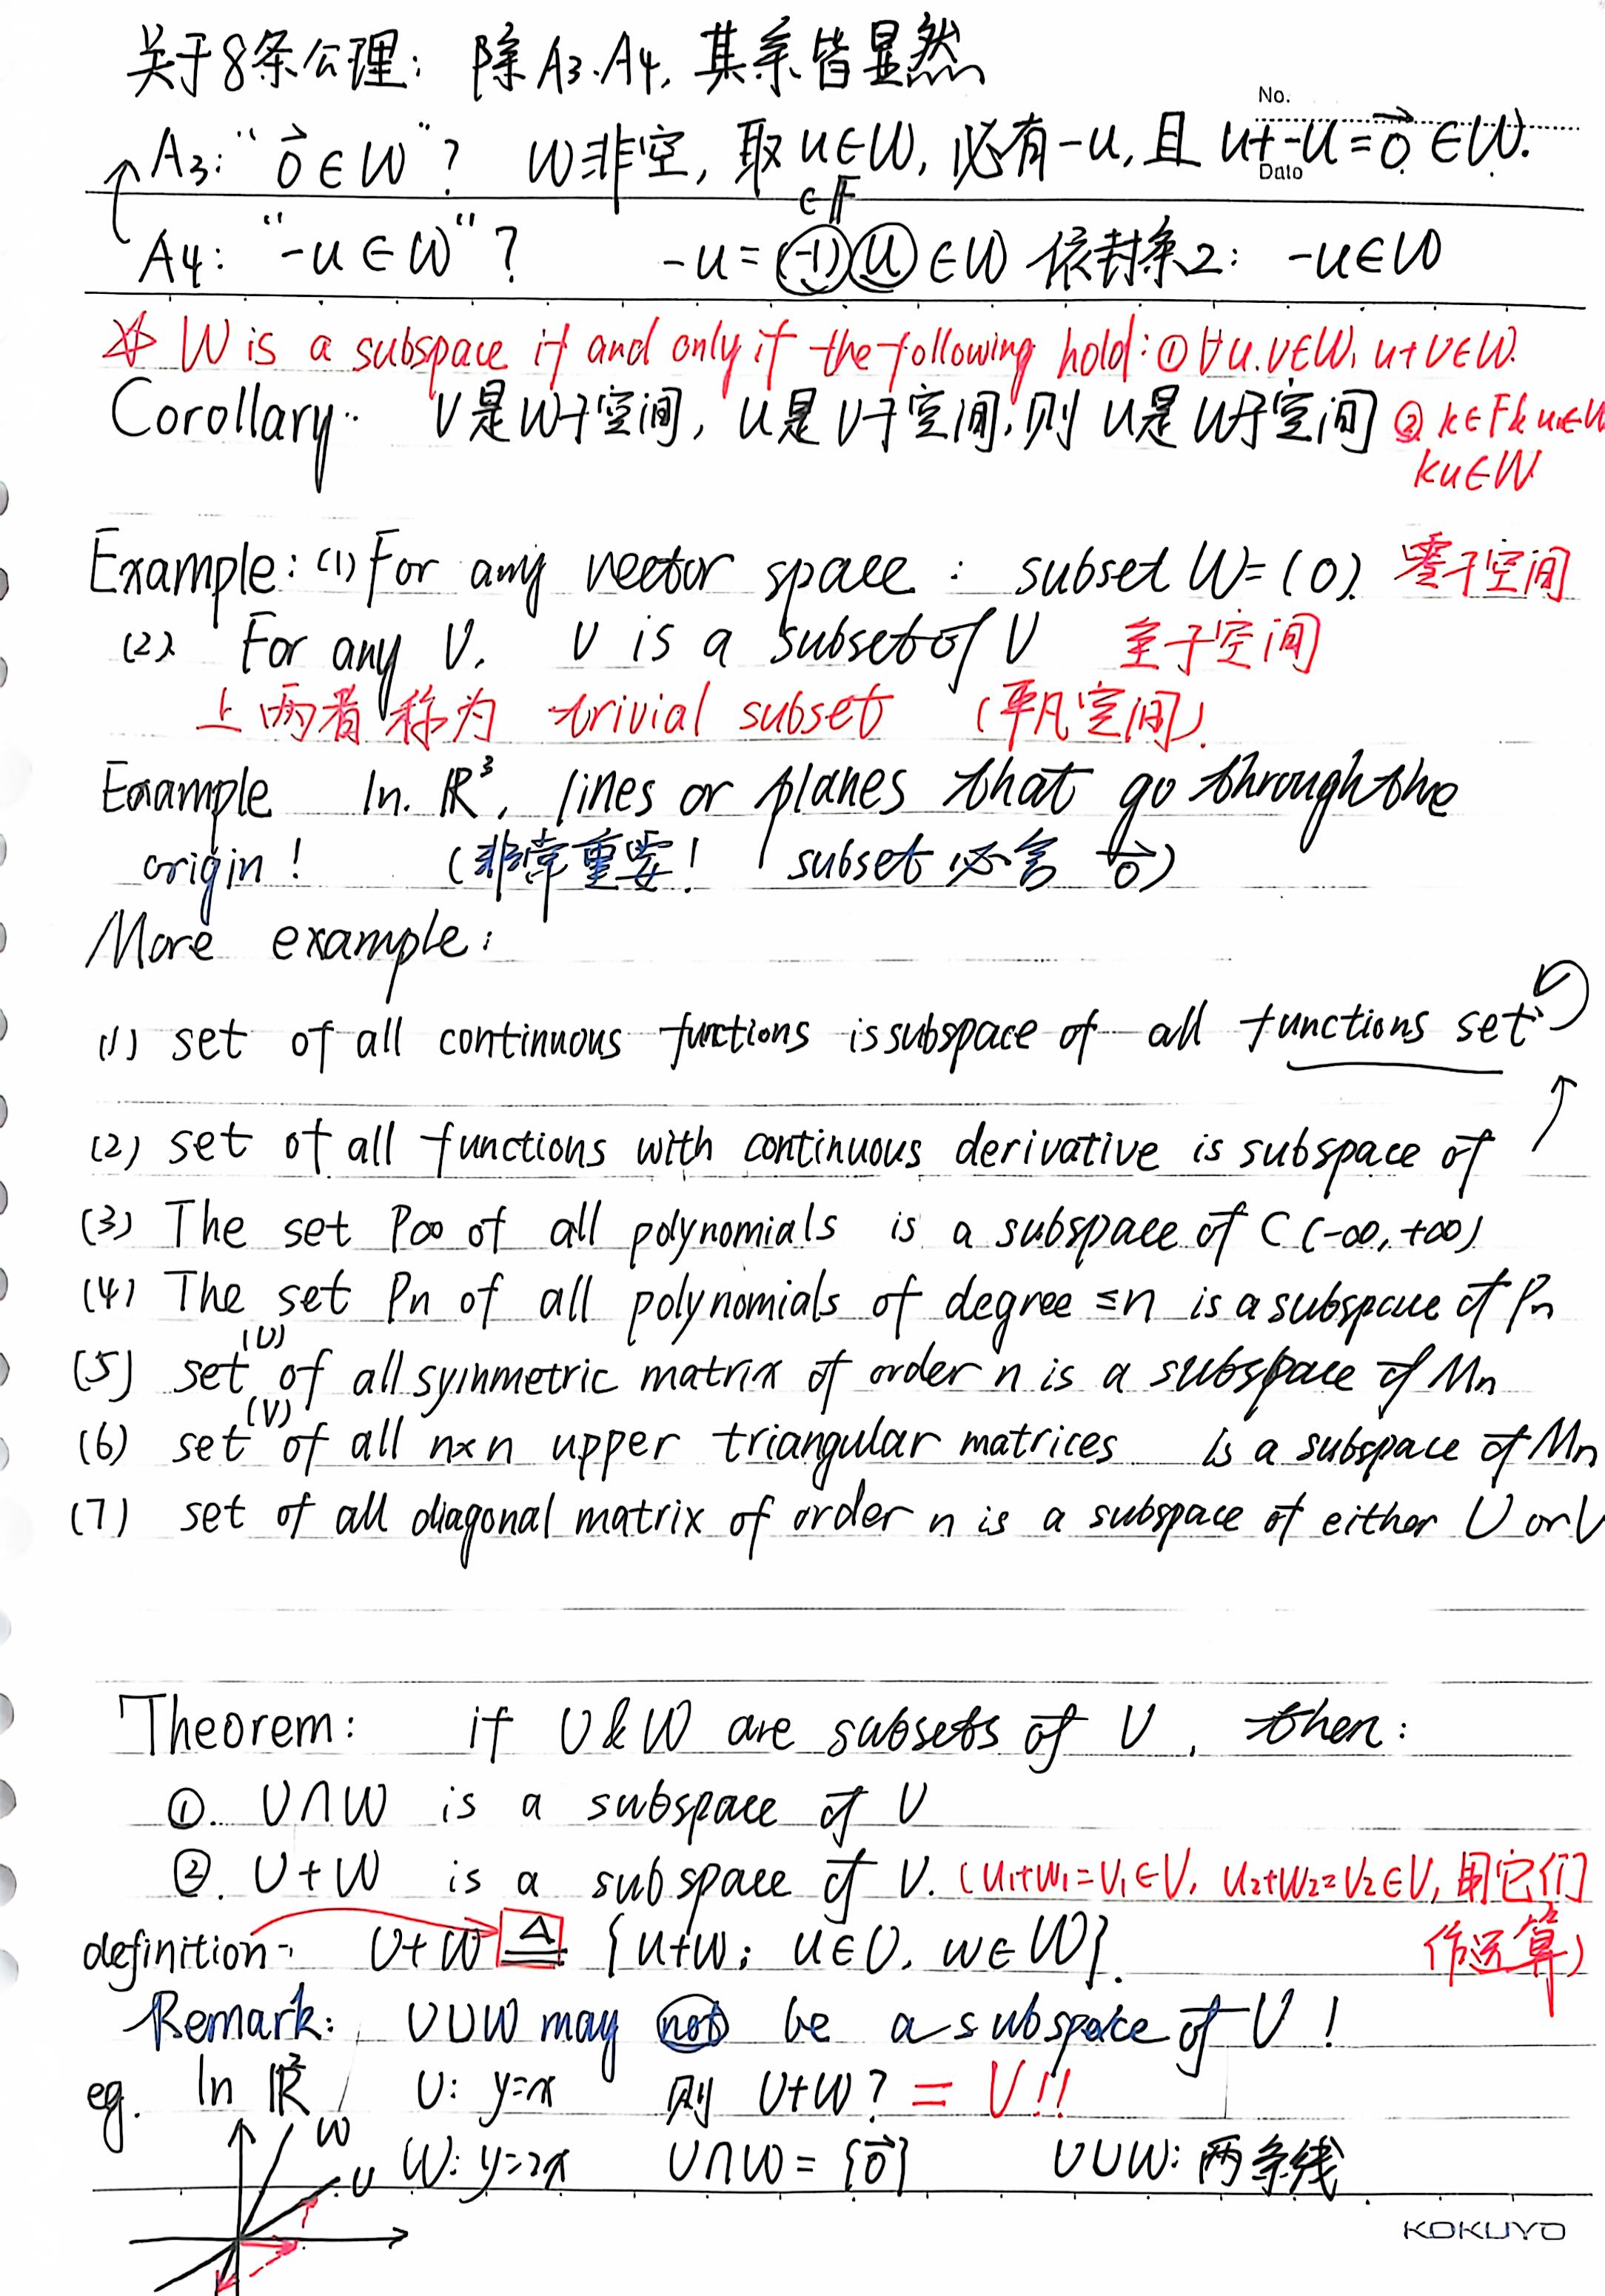 关于8条公理: 除A3.A4, 其余皆显然
No.
A3: "0⃗ ∈ W"? W非空, 取u∈W, 必有-u, 且 u+-u=0⃗ ∈W.
Date
∈F
A4: "-u ∈ W"? -u = (-1)(u) ∈W 依封条2: -u∈W
☆ W is a subspace if and only if the following hold: ① ∀u.v∈W, u+v∈W.
Corollary: V是W子空间, U是V子空间, 则 U是W子空间 ② k∈F & u∈W
ku∈W
Example: (1) For any vector space : subset W=(0). 零子空间
(2) For any V. V is a subset of V 全子空间
上两者称为 trivial subset (平凡空间).
Example In. R³, lines or planes that go through the
origin! (非常重要! subset 必含 0⃗)
More example:
(1) set of all continuous functions is subspace of all functions set
(2) set of all functions with continuous derivative is subspace of ↑
(3) The set P∞ of all polynomials is a subspace of C(-∞,+∞)
(4) The set Pn of all polynomials of degree ≤n is a subspace of Pn
(U)
(5) set of all symmetric matrix of order n is a subspace of Mn
(V)
(6) set of all n×n upper triangular matrices is a subspace of Mn
(7) set of all diagonal matrix of order n is a subspace of either U or V
Theorem: if U & W are subsets of V, then:
①. U∩W is a subspace of V
②. U+W is a subspace of V. (u1+w1=v1∈V, u2+w2=v2∈V, 用它们
作运算)
definition: U+W ≜ {u+w; u∈U, w∈W}.
Remark: U∪W may not be a subspace of V!
eg. In R² U: y=x 则 U+W? = V!!
W
U W: y=2x U∩W = {0⃗} U∪W: 两条线
KOKUYO